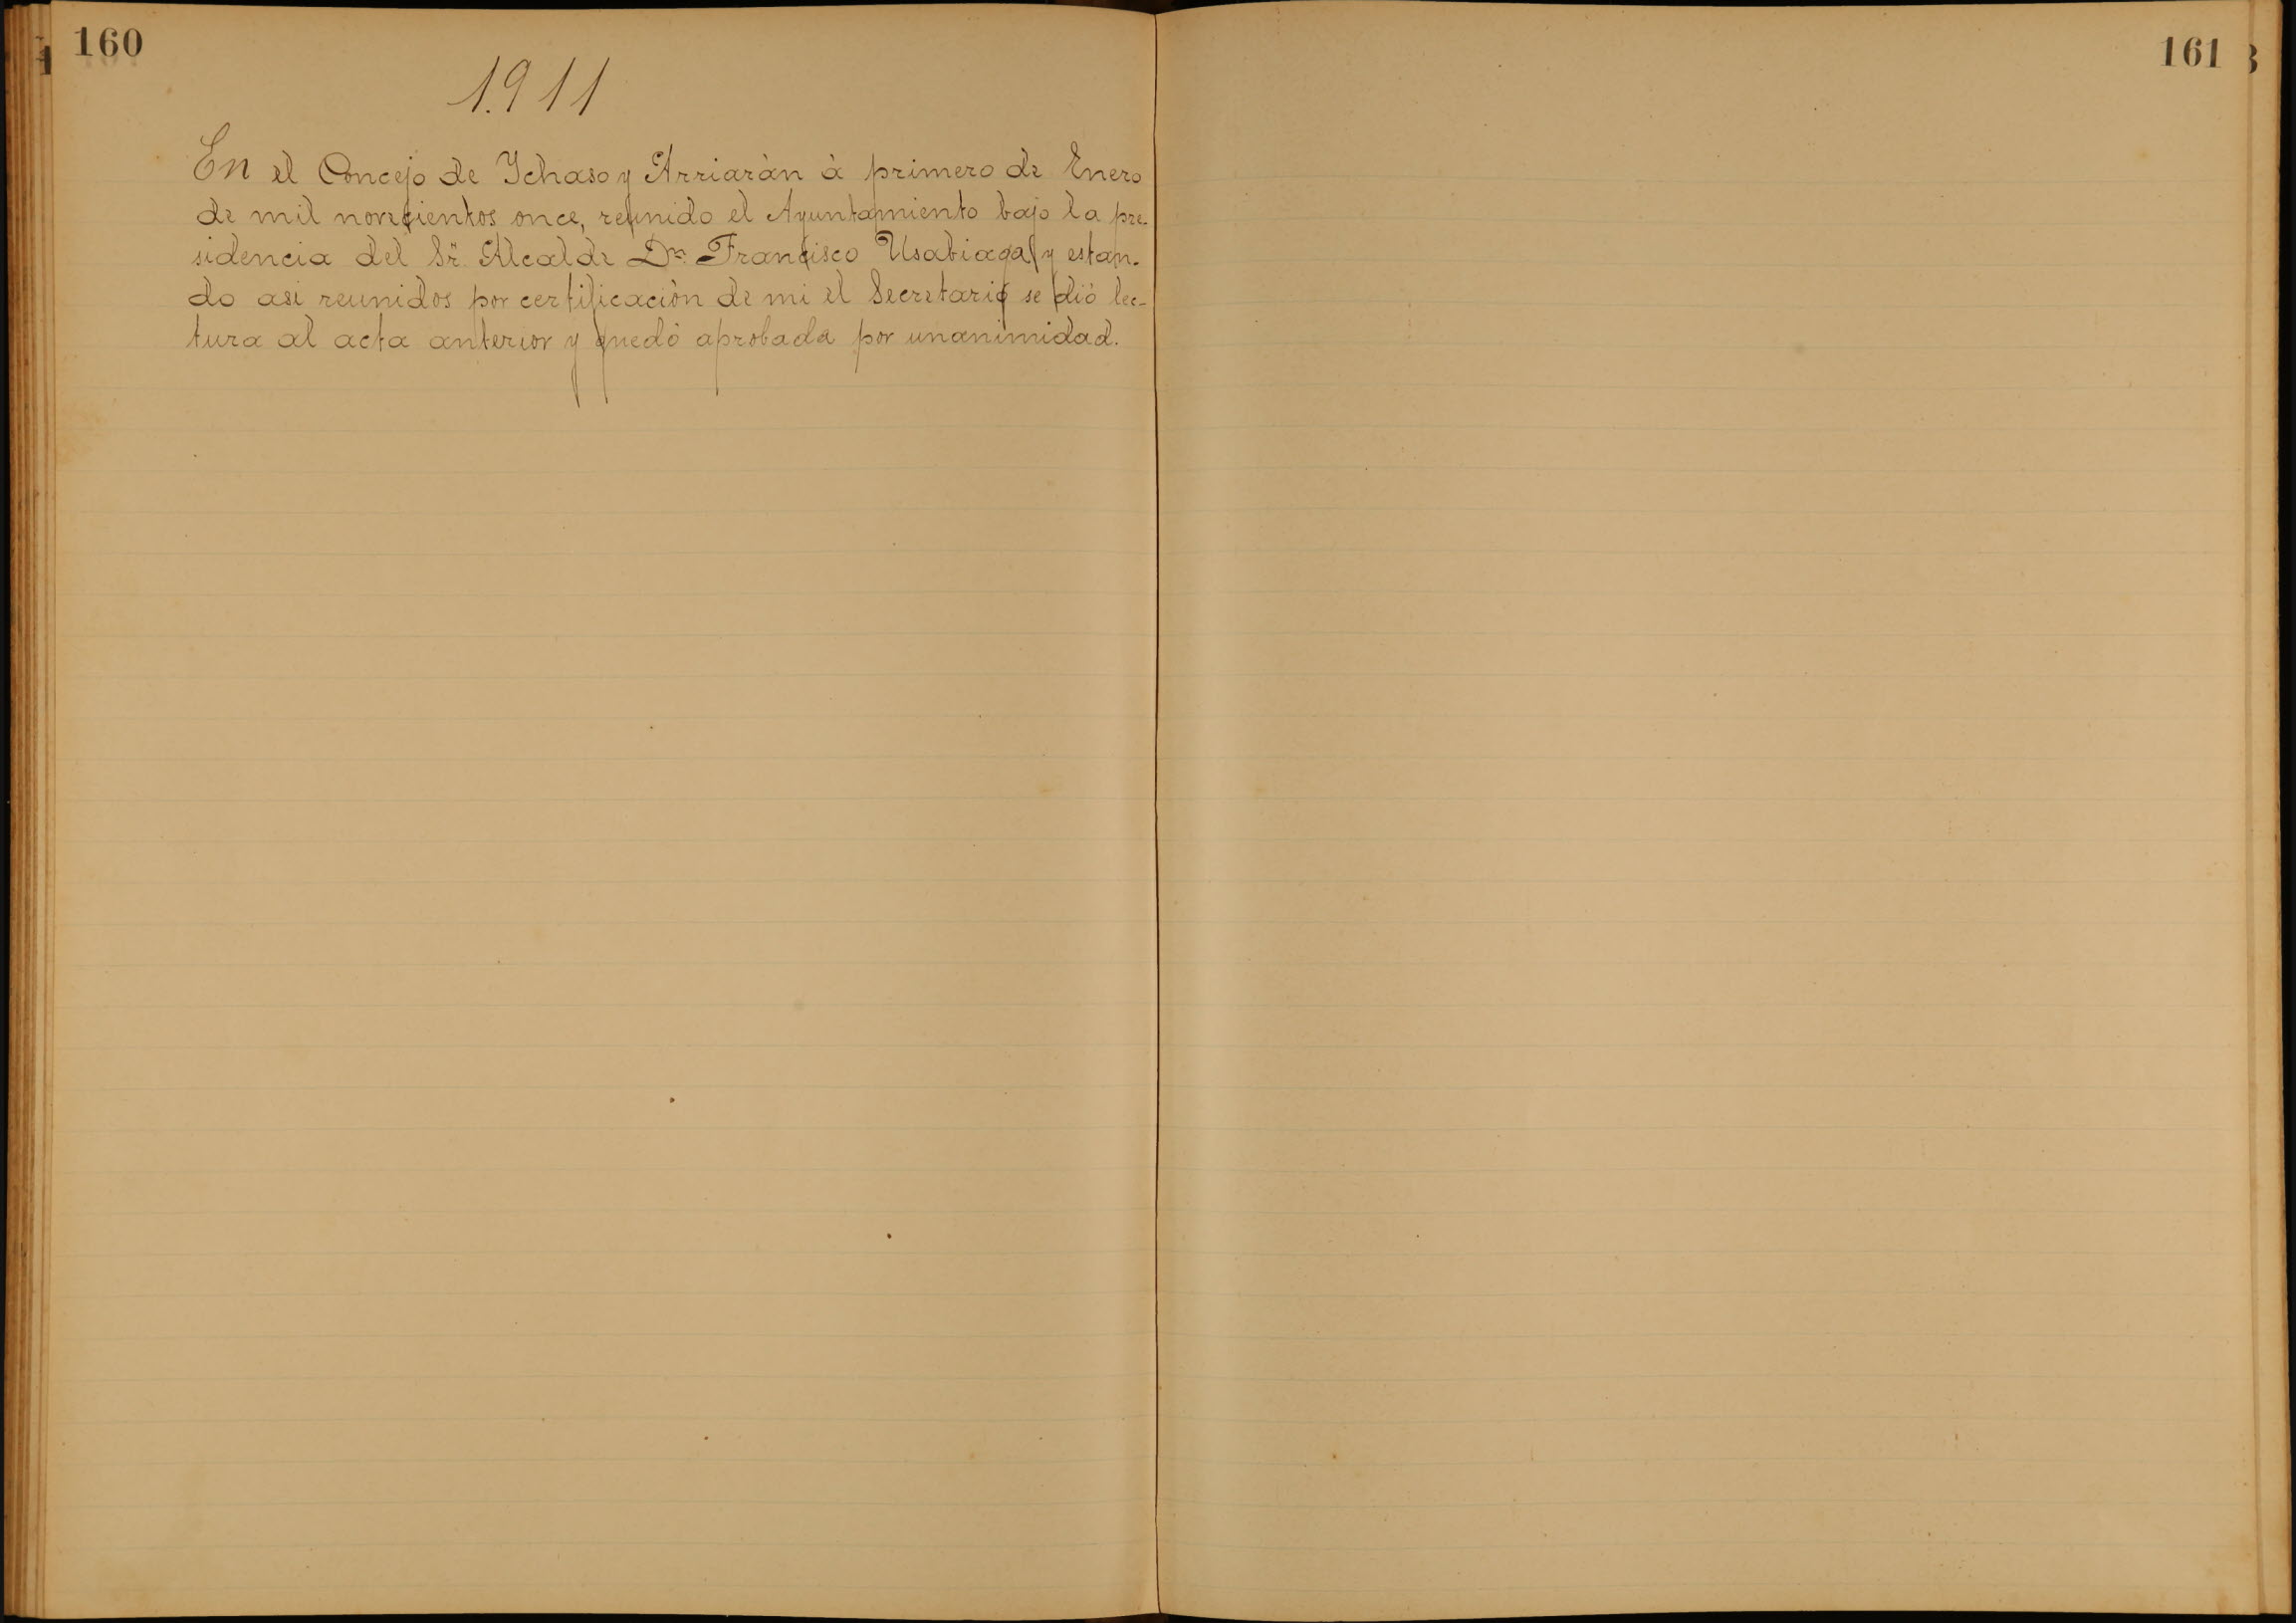 160
1.911
En el Concejo de Ychaso y Arriaràn à primero de Enero
de mil novecientos once, reunido el Ayuntamiento bajo la pre-
sidencia del Sr. Alcalde Dn. Francisco Usabiaga y estan-
do asi reunidos por certificaciòn de mi el Secretario se diò lec-
tura al acta anterior y quedò aprobada por unanimidad.
161